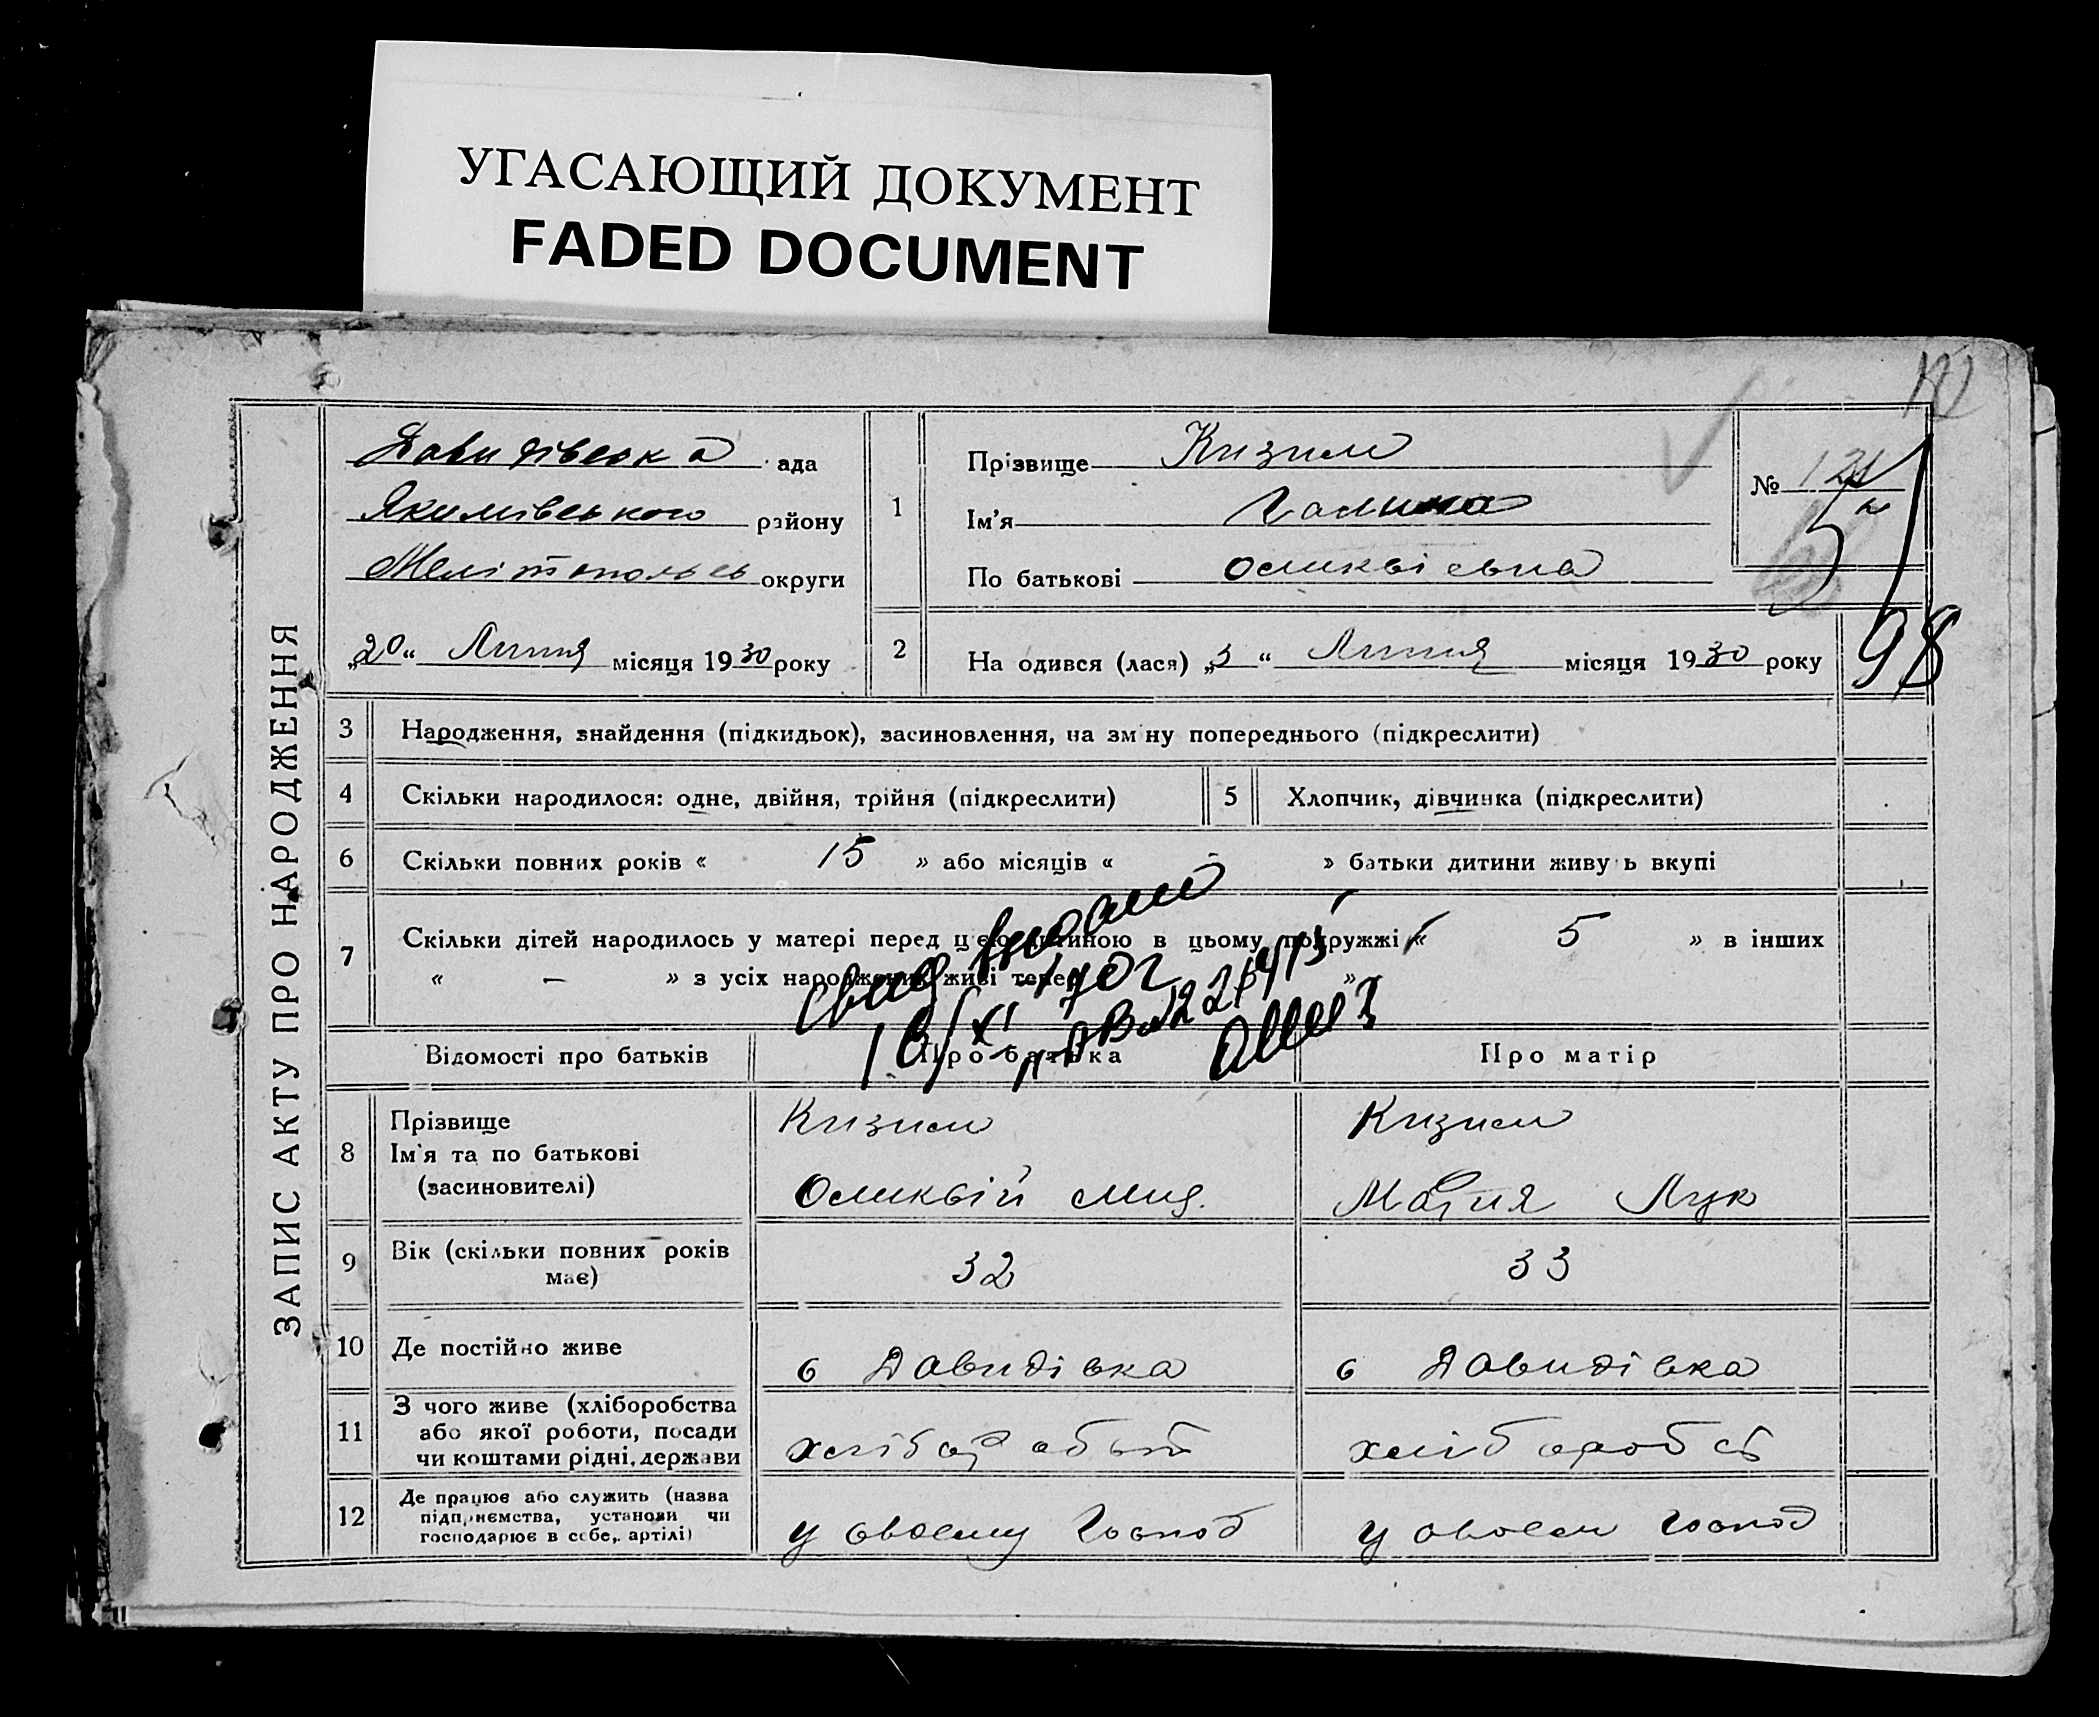 УГАСАЮЩИЙ ДОКУМЕНТ
FADED DOCUMENT
ЗАПИС АКТУ ПРО НАРОДЖЕННЯ
Давидівська ада
Якимівського району
Мелітопольсь округи
„20“ Липня місяця 1930 року
1
Прізвище Кизим
Ім'я Галина
По батькові
№
98
2 На одився (лася) „3“ Липня місяця 1930 року
3 Народження, знайдення (підкидьок), засиновлення, на зм ну попереднього (підкреслити)
4 Скільки народилося: одне, двійня, трійня (підкреслити)
5 Хлопчик, дівчинка (підкреслити)
6 Скільки повних років « 15 » або місяців « - » батьки дитини живу ь вкупі
7 Скільки дітей народилось у матері перед цією дитиною в цьому подружжі « 5 » в інших
« — » з усіх народжених живі тепер »
Відомості про батьків Про батька Про матір
8 Прізвище
Ім'я та по батькові
(засиновителі)
Кизим
Кизим
Мария Лук
9 Вік (скільки повних років
має)
32
33
10 Де постійно живе
с Давидівка
с Давидівка
11 З чого живе (хліборобства
або якої роботи, посади
чи коштами рідні, держави
хлібороб ст
12 Де працює або служить (назва
підприємства, установи чи
господарює в себе, артілі)
у своему Господ
у своем Господ